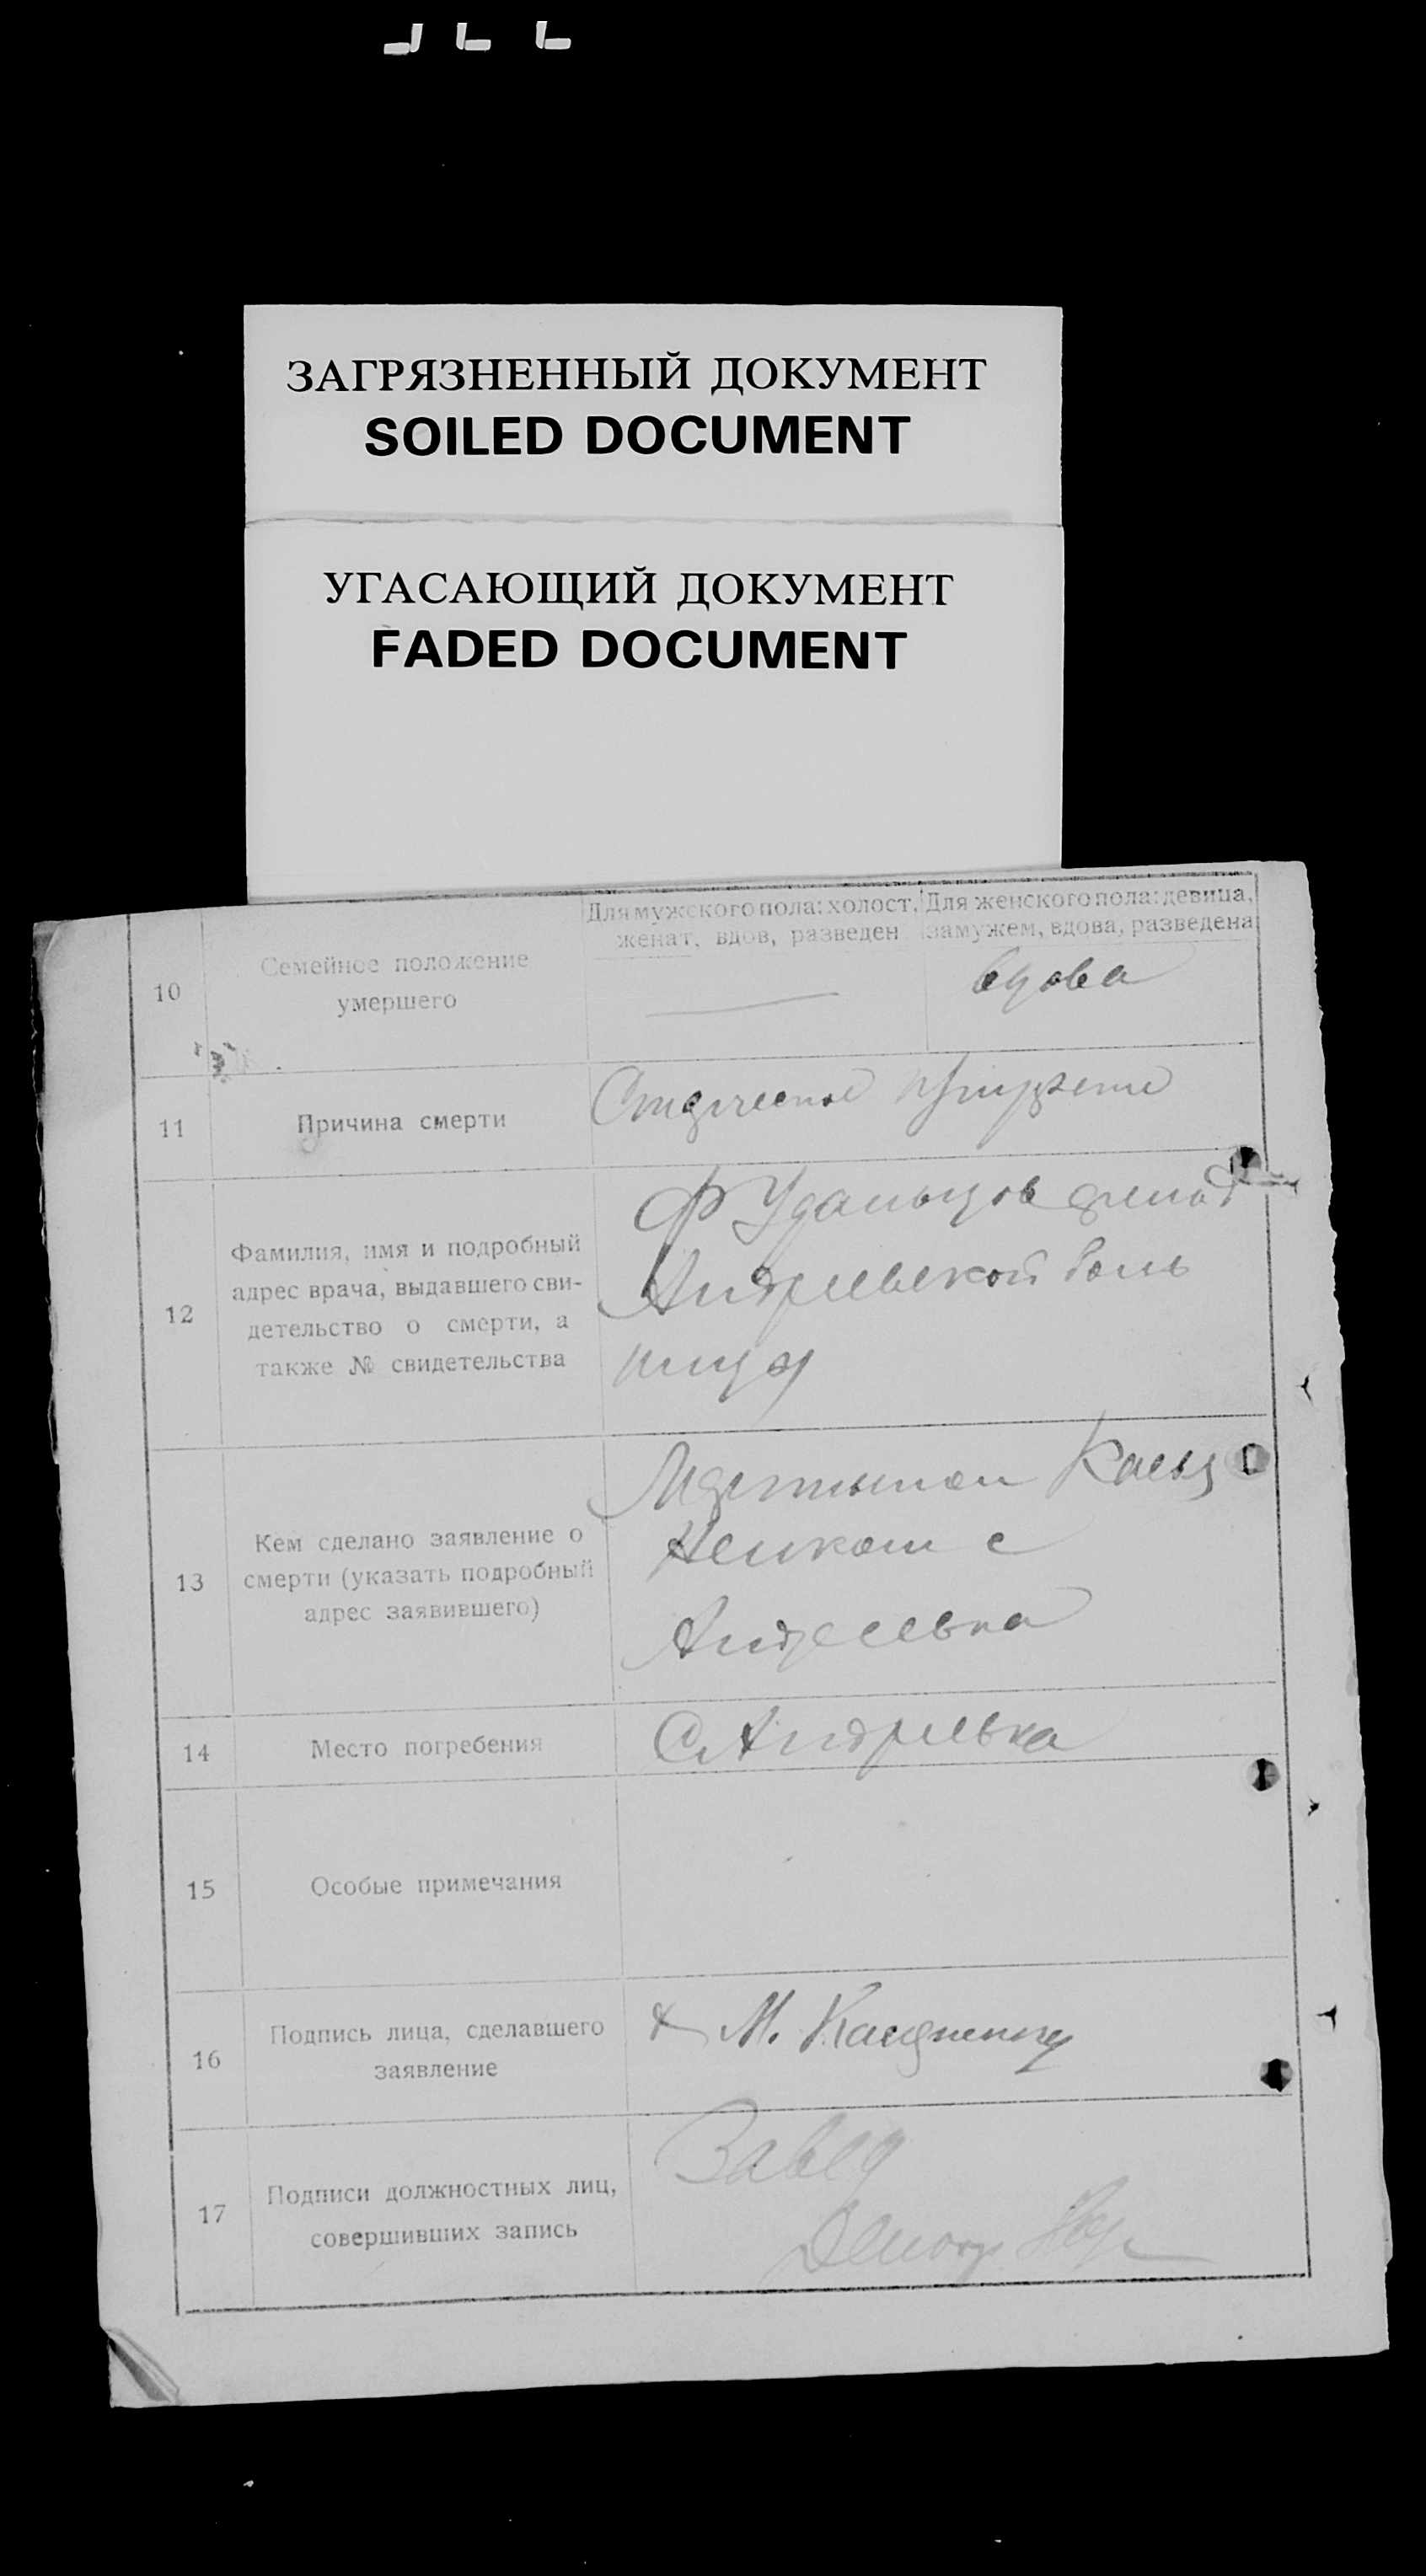 ЗАГРЯЗНЕННЫЙ ДОКУМЕНТ
SOILED DOCUMENT
УГАСАЮЩИЙ ДОКУМЕНТ
FADED DOCUMENT
Для мужского пола: холост, Для женского пола: девица,
женат, вдов, разведен замужем, вдова, разведена
10
Семейное положение
умершего
вдова
11
Причина смерти
12
Фамилия, имя и подробный
адрес врача, выдавшего сви-
детельство о смерти, а
также № свидетельства
Ф Удальцов
Андреевской боль
ницы
13
Кем сделано заявление о
смерти (указать подробный
адрес заявившего)
с
Андреевка
14
Место погребения
С Андреевка
15
Особые примечания
16
Подпись лица, сделавшего
заявление
М.
17
Подписи должностных лиц,
совершивших запись
Завед